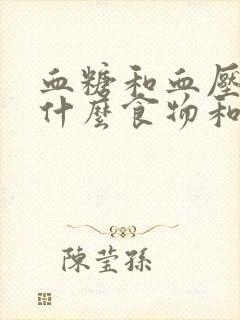 血糖和血壓
什麼食物和
陳莹孫